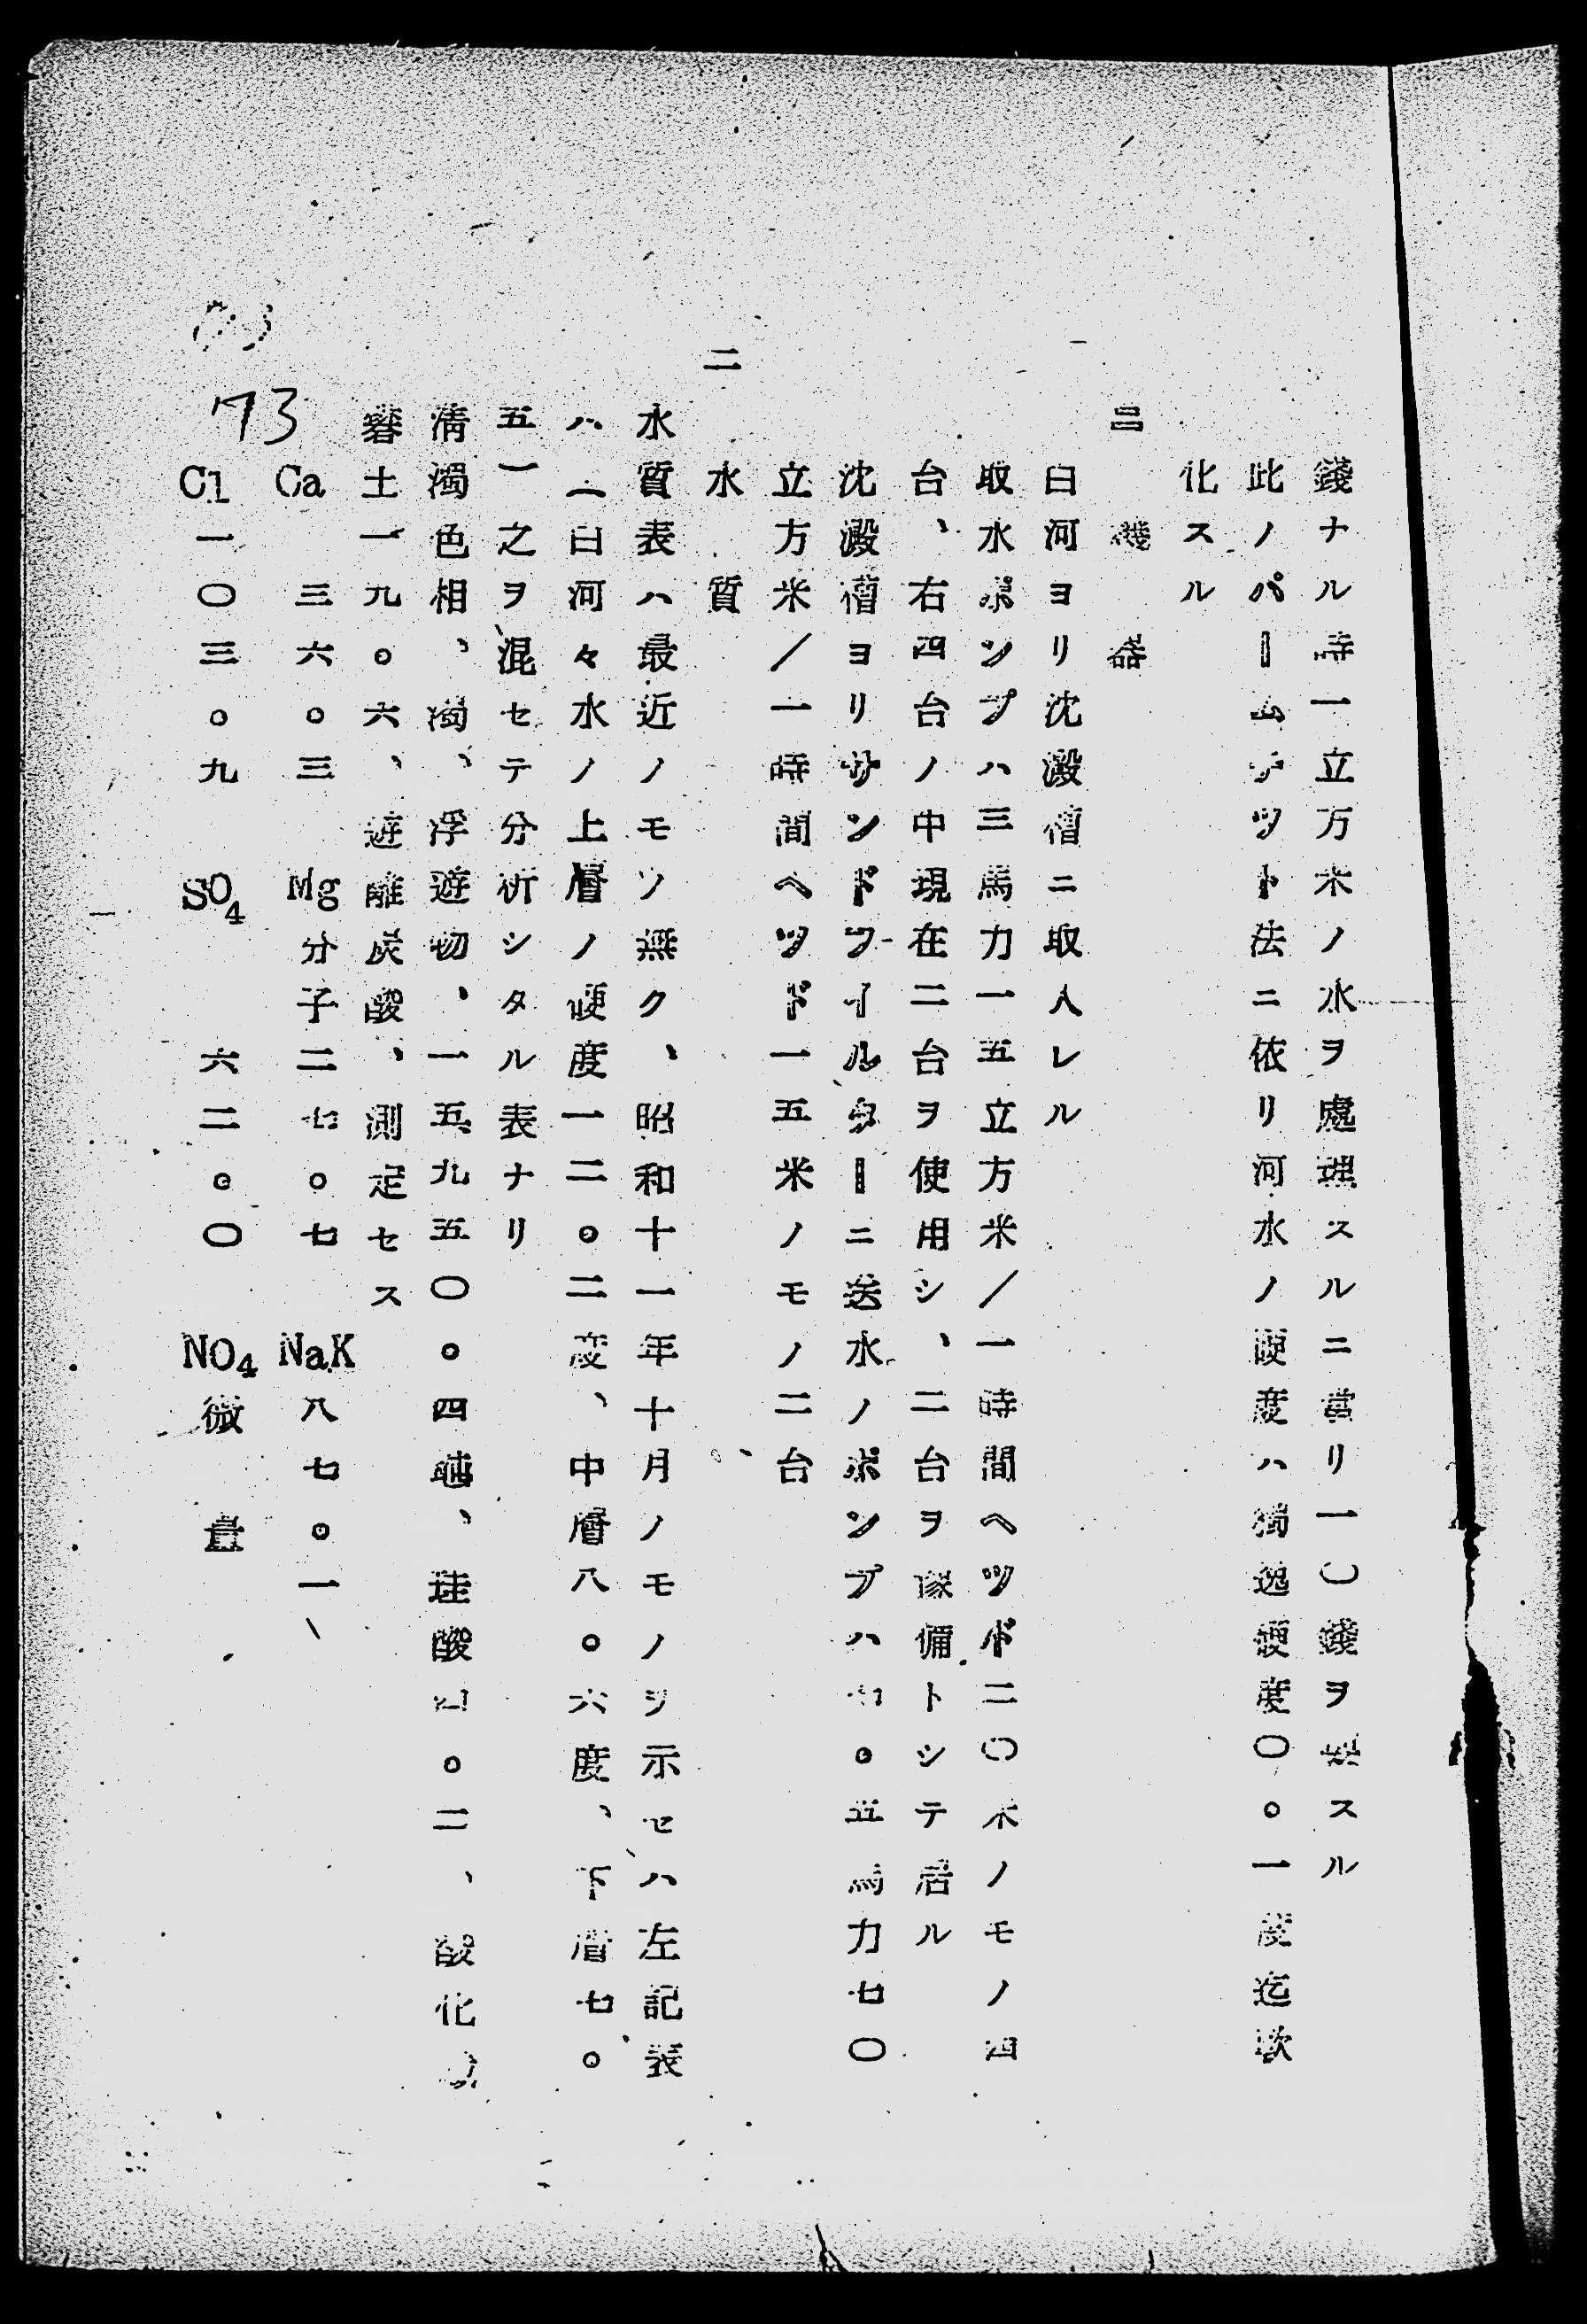 錢ナル時一立方米ノ水ヲ處理スルニ當リ一〇錢ヲ要スル
此ノパームチツト法ニ依リ河水ノ硬度ハ獨逸硬度〇。一度迄軟
化スル
三 機器
白河ヨリ沈澱槽ニ取入レル
取水ポンプハ三馬力一五立方米/一時間ヘツド二〇米ノモノ四
台、右四台ノ中現在二台ヲ使用シ、二台ヲ豫備トシテ居ル
沈澱槽ヨリサンドフイルターニ送水ノポンプハ七。五馬力七〇
立方米/一時間ヘツド一五米ノモノ二台
二 水質
水質表ハ最近ノモノ無ク、昭和十一年十月ノモノヲ示セハ左記表
ハ白河々水ノ上層ノ硬度一二。二度、中層八。六度、下層七。
五一之ヲ混セテ分析シタル表ナリ
淸濁色相、濁、浮遊物、一五、九五〇。四瓱、珪酸四。二、酸化
礬土一九。六、遊離炭酸、測定セス
Ca 三六。三 Mg分子二七。七 NaK八七。一
Cl一〇三。九 SO4 六二。〇 NO4微量
73